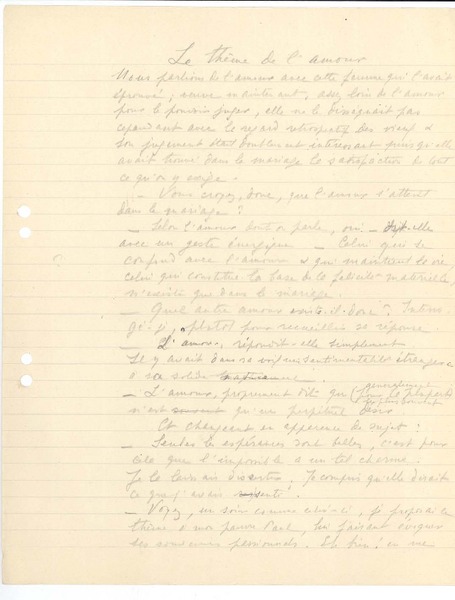 Le thème de l'amour
Nous parlions de l'amour avec cette femme qui l'avait
éprouvé ; veuve maintenant, assez loin de l'amour
pour le pouvoir juger, elle ne le dénigrait pas
cependant avec le regard rétrospectif des vieux &
son jugement était doublement intéressant puisqu'elle
avait trouvé dans le mariage la satisfaction de tout
ce qu'on y exige.
— Vous croyez, donc, que l'amour s'atteint
dans le mariage ?
— Selon l'amour dont on parle, oui — dit-elle
avec un geste énergique — Celui qui se
confond avec l'amour & qui maintient la vie,
celui qui constitue la base de la félicité matérielle,
n'existe que dans le mariage.
— Quel autre amour existe-t-il donc ? Interro-
geai-je, plutôt pour recueillir sa réponse.
— L'amour, répondit-elle simplement
Il y avait dans sa voix une sentimentalité étrangère
à sa solide
— L'amour, proprement dit, que généralement
n'est qu'un perpétuel désir
Et changeant en apparence de sujet :
— Seules les espérances sont belles, c'est pour
cela que l'impossible a un tel charme.
Je le savais disserter. Je compris qu'elle dirait
ce que j'avais
— Voyez, un soir comme celui-ci, je proposai ce
thème à mon pauvre Paul, lui faisant évoquer
ses souvenirs personnels. Eh bien ! on me